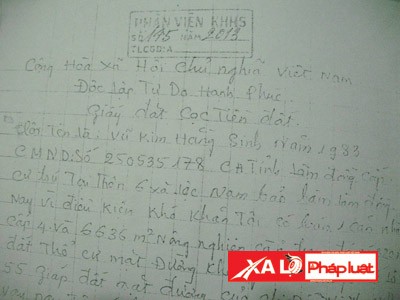 PHÂN VIỆN KHHS
Số 195 năm 2013
TLCGĐ:A
Cộng Hòa Xã Hội Chủ nghĩa Việt Nam
Độc lập Tự Do Hạnh Phúc
Giấy đặt Cọc Tiền đất.
Tôi Tên là: Vũ Kim Hằng Sinh năm 1983
CMND: Số 250535178 CA Tỉnh Lâm đồng cấp
Cư trú Tại Thôn 6 xã Lộc Nam bảo lâm lâm đồng
Nay vì điều kiện Khó Khăn Tôi có bán 1 căn nhà
Cấp 4 và 6636 m² Nông nghiệp
đất Thổ cư mặt Đường
giáp đất mặt đường
XALỘ Phápluật.